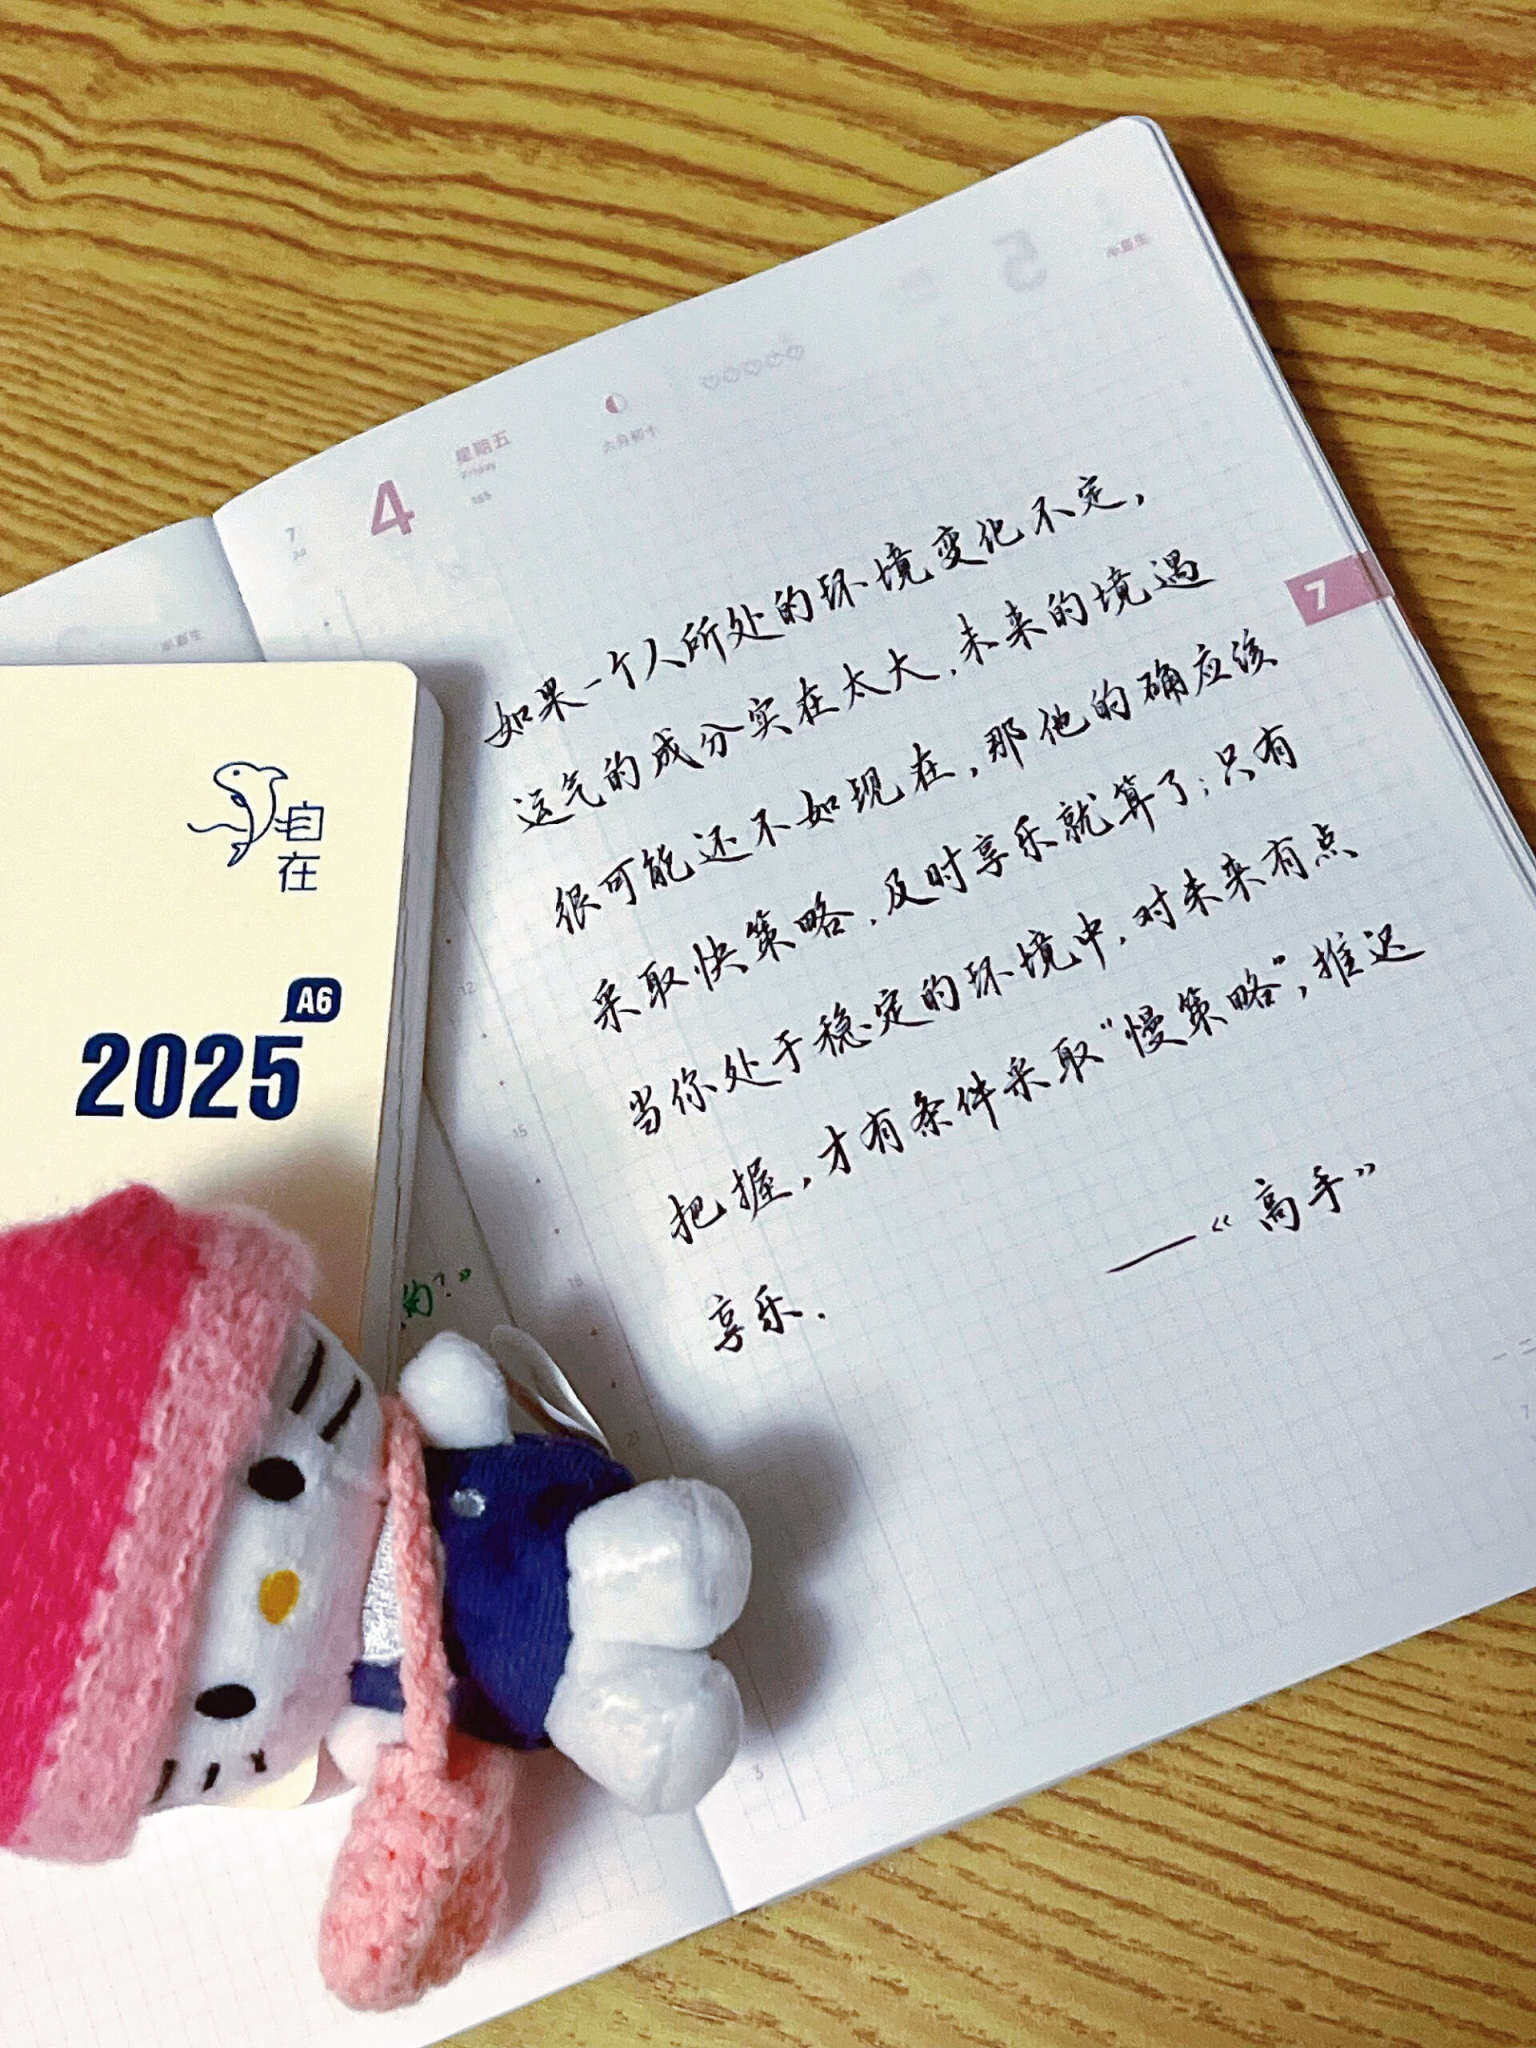 7
Jul
4
星期五
Friday
185
六月初十
5
半夏生
如果一个人所处的环境变化不定，
运气的成分实在太大，未来的境遇
很可能还不如现在，那他的确应该
采取快策略，及时享乐就算了；只有
当你处于稳定的环境中，对未来有点
把握，才有条件采取“慢策略”，推迟
享乐.
——《高手》
7
半夏生
自
在
A6
2025
的？”
12
15
18
21
3